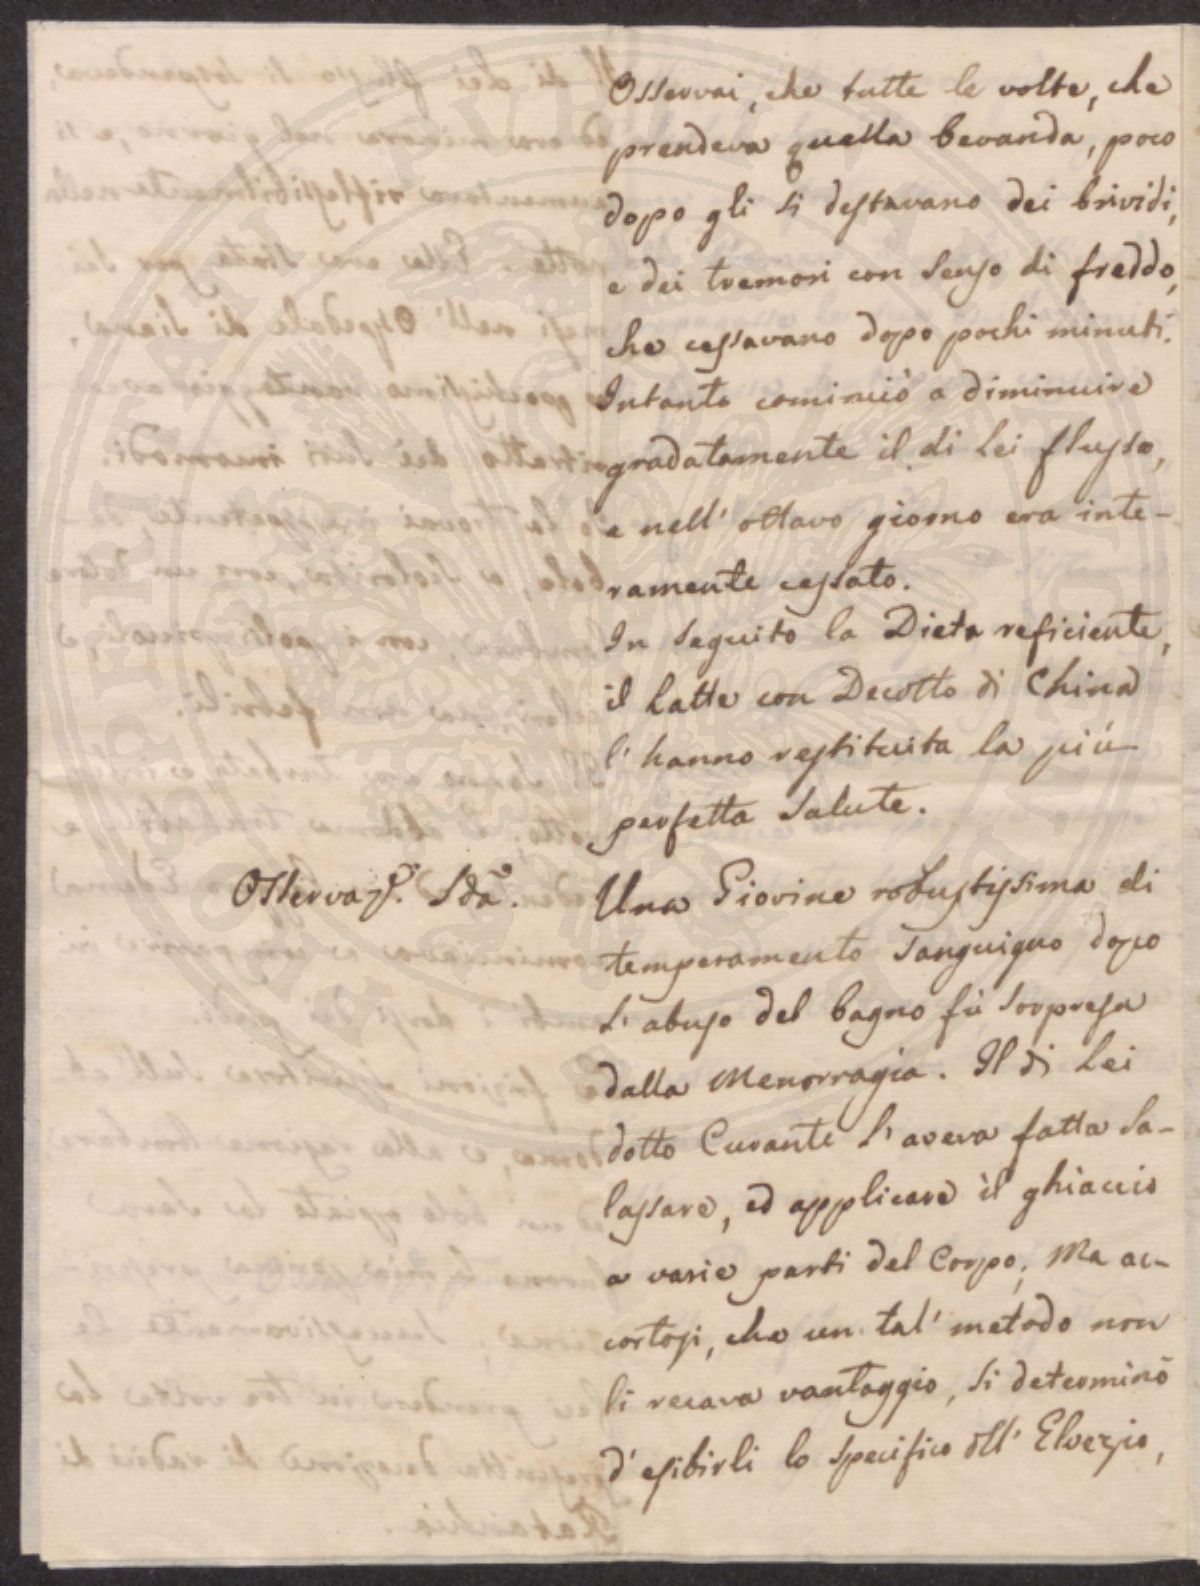 Osservai, che tutte le volte, che
prendeva quella bevanda, poco
dopo gli si destavano dei brividi,
e dei tremori con senso di freddo,
che cessavano dopo pochi minuti.
Intanto cominciò a diminuire
gradatamente il di Lei flusso,
e nell' ottavo giorno era inte-
ramente cessato.
In seguito la Dieta reficiente,
il Latte con Decotto di China
l' hanno restituita la più
perfetta Salute.
Osservaz.e 2da.
Una Giovine robustissima di
temperamento Sanguigno dopo
L' abuso del bagno fù sorpresa
dalla Menorragia. Il di Lei
dotto Curante L' aveva fatta Sa-
lassare, ed applicare il ghiaccio
a varie parti del Corpo; Ma ac-
cortosi, che un tal' metodo non
li recava vantaggio, Si determinò
d' esibirli lo Specifico dell' Elvezio,